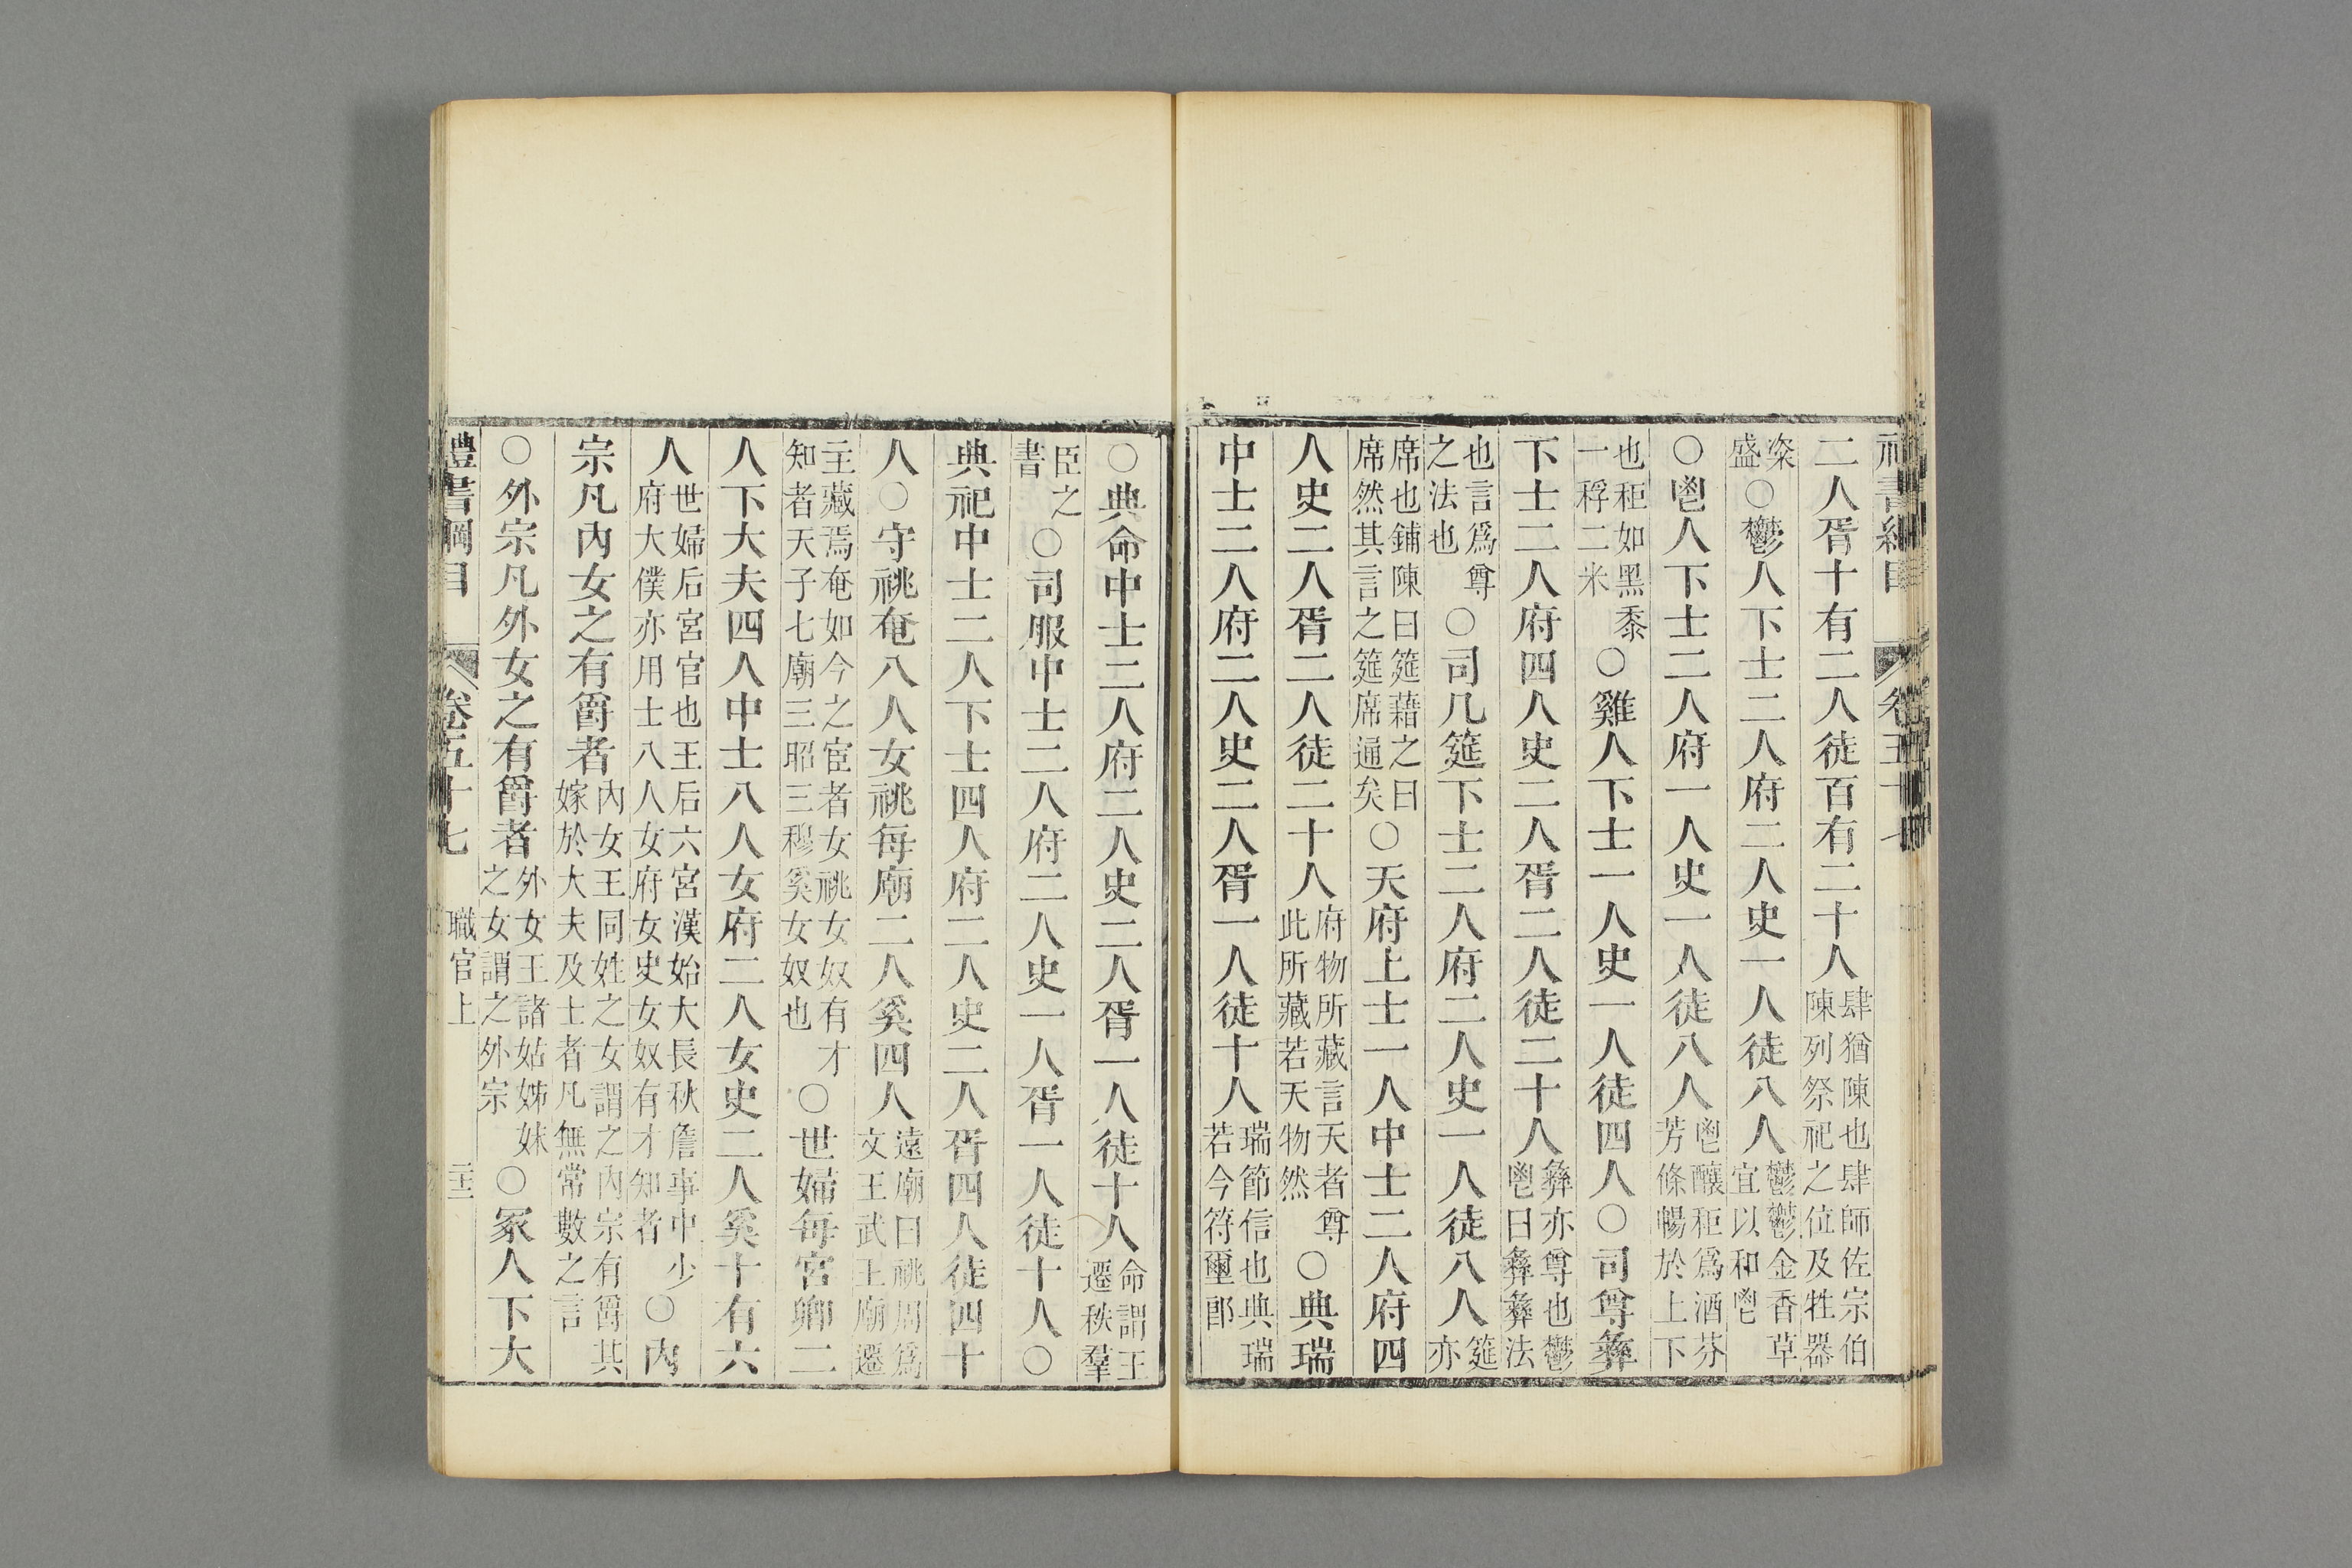 禮書綱目　卷五十七
二人胥十有二人徒百有二十人肆猶陳也肆師佐宗伯陳列祭祀之位及牲器
粢盛○鬱人下士二人府二人史一人徒八人鬱鬱金香草宜以和鬯
○鬯人下士二人府一人史一人徒八人鬯釀秬爲酒芬芳條暢於上下
也秬如黑黍一稃二米○雞人下士一人史一人徒四人○司尊彝
下士二人府四人史二人胥二人徒二十人彝亦尊也鬱鬯曰彝彝法
也言爲尊之法也○司几筵下士二人府二人史一人徒八人筵亦
席也鋪陳曰筵藉之曰席然其言之筵席通矣○天府上士一人中士二人府四
人史二人胥二人徒二十人府物所藏言天者尊此所藏若天物然○典瑞
中士二人府二人史二人胥一人徒十人瑞節信也典瑞若今符璽郎
○典命中士二人府二人史二人胥一人徒十人命謂王遷秩羣
臣之書○司服中士二人府二人史一人胥一人徒十人○
典祀中士二人下士四人府二人史二人胥四人徒四十
人○守祧奄八人女祧每廟二人奚四人遠廟曰祧周爲文王武王廟遷
主藏焉奄如今之宦者女祧女奴有才知者天子七廟三昭三穆奚女奴也○世婦每宮卿二
人下大夫四人中士八人女府二人女史二人奚十有六
人世婦后宮官也王后六宮漢始大長秋詹事中少府大僕亦用士八人女府女史女奴有才知者○內
宗凡內女之有爵者內女王同姓之女謂之內宗有爵其嫁於大夫及士者凡無常數之言
○外宗凡外女之有爵者外女王諸姑姊妹之女謂之外宗○冢人下大
禮書綱目　卷五十七　職官上